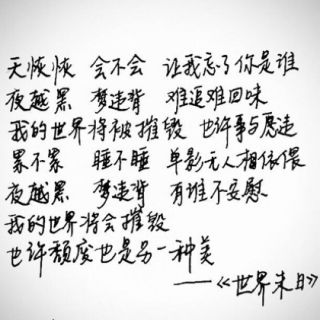 天恢恢 会不会 让我忘了你是谁
夜越黑 梦违背 难追难回味
我的世界将被摧毁 也许事与愿违
累不累 睡不睡 单影无人相依偎
夜越黑 梦违背 有谁不安慰
我的世界将会摧毁
也许颓废也是另一种美
——《世界末日》